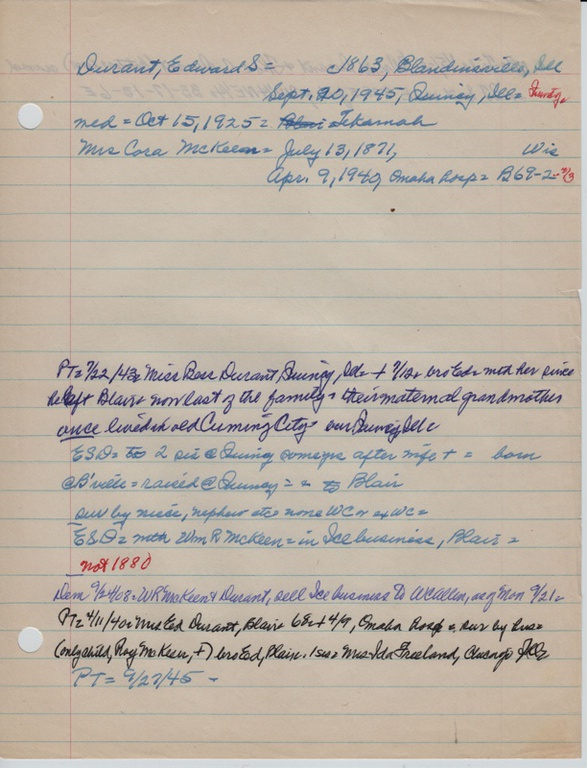 Durant, Edward S = c1863, Blandinsville, Ill
Sept. 20, 1945, Quincy, Ill =
med = Oct 15, 1925 = Tekamah
Mrs Cora McKeen = July 13, 1871, Wis
Apr. 9, 1940, Omaha hosp = B69-2-
PT = 7/22/43 = Miss Bess Durant, Quincy, Ill = + 7/12 = bro Ed = mth her since
he left Blair = now last of the family = their maternal grandmother
once lived in old Cuming City = our Quincy Ill =
ESD = to 2 sis @ Quincy after wife + = born
@ B'ville = raised @ Quincy = = to Blair
sur by niece, nephew etc = none WC or ex WC =
ESD = mth Wm R McKeen = in Ice business, Blair =
not 1880
Dem 9/24/08 = WR McKeen & Durant, sell Ice business to WC Allen, as of Mon 9/21 =
PT = 4/11/40 = Mrs Ed Durant, Blair = 68 = + 4/9, Omaha hosp = sur by hus =
(only child, Roy McKeen, +) bro Ed, Plain. 1 sis = Mrs Ida Freeland, Chicago Ill =
PT = 9/27/45 -